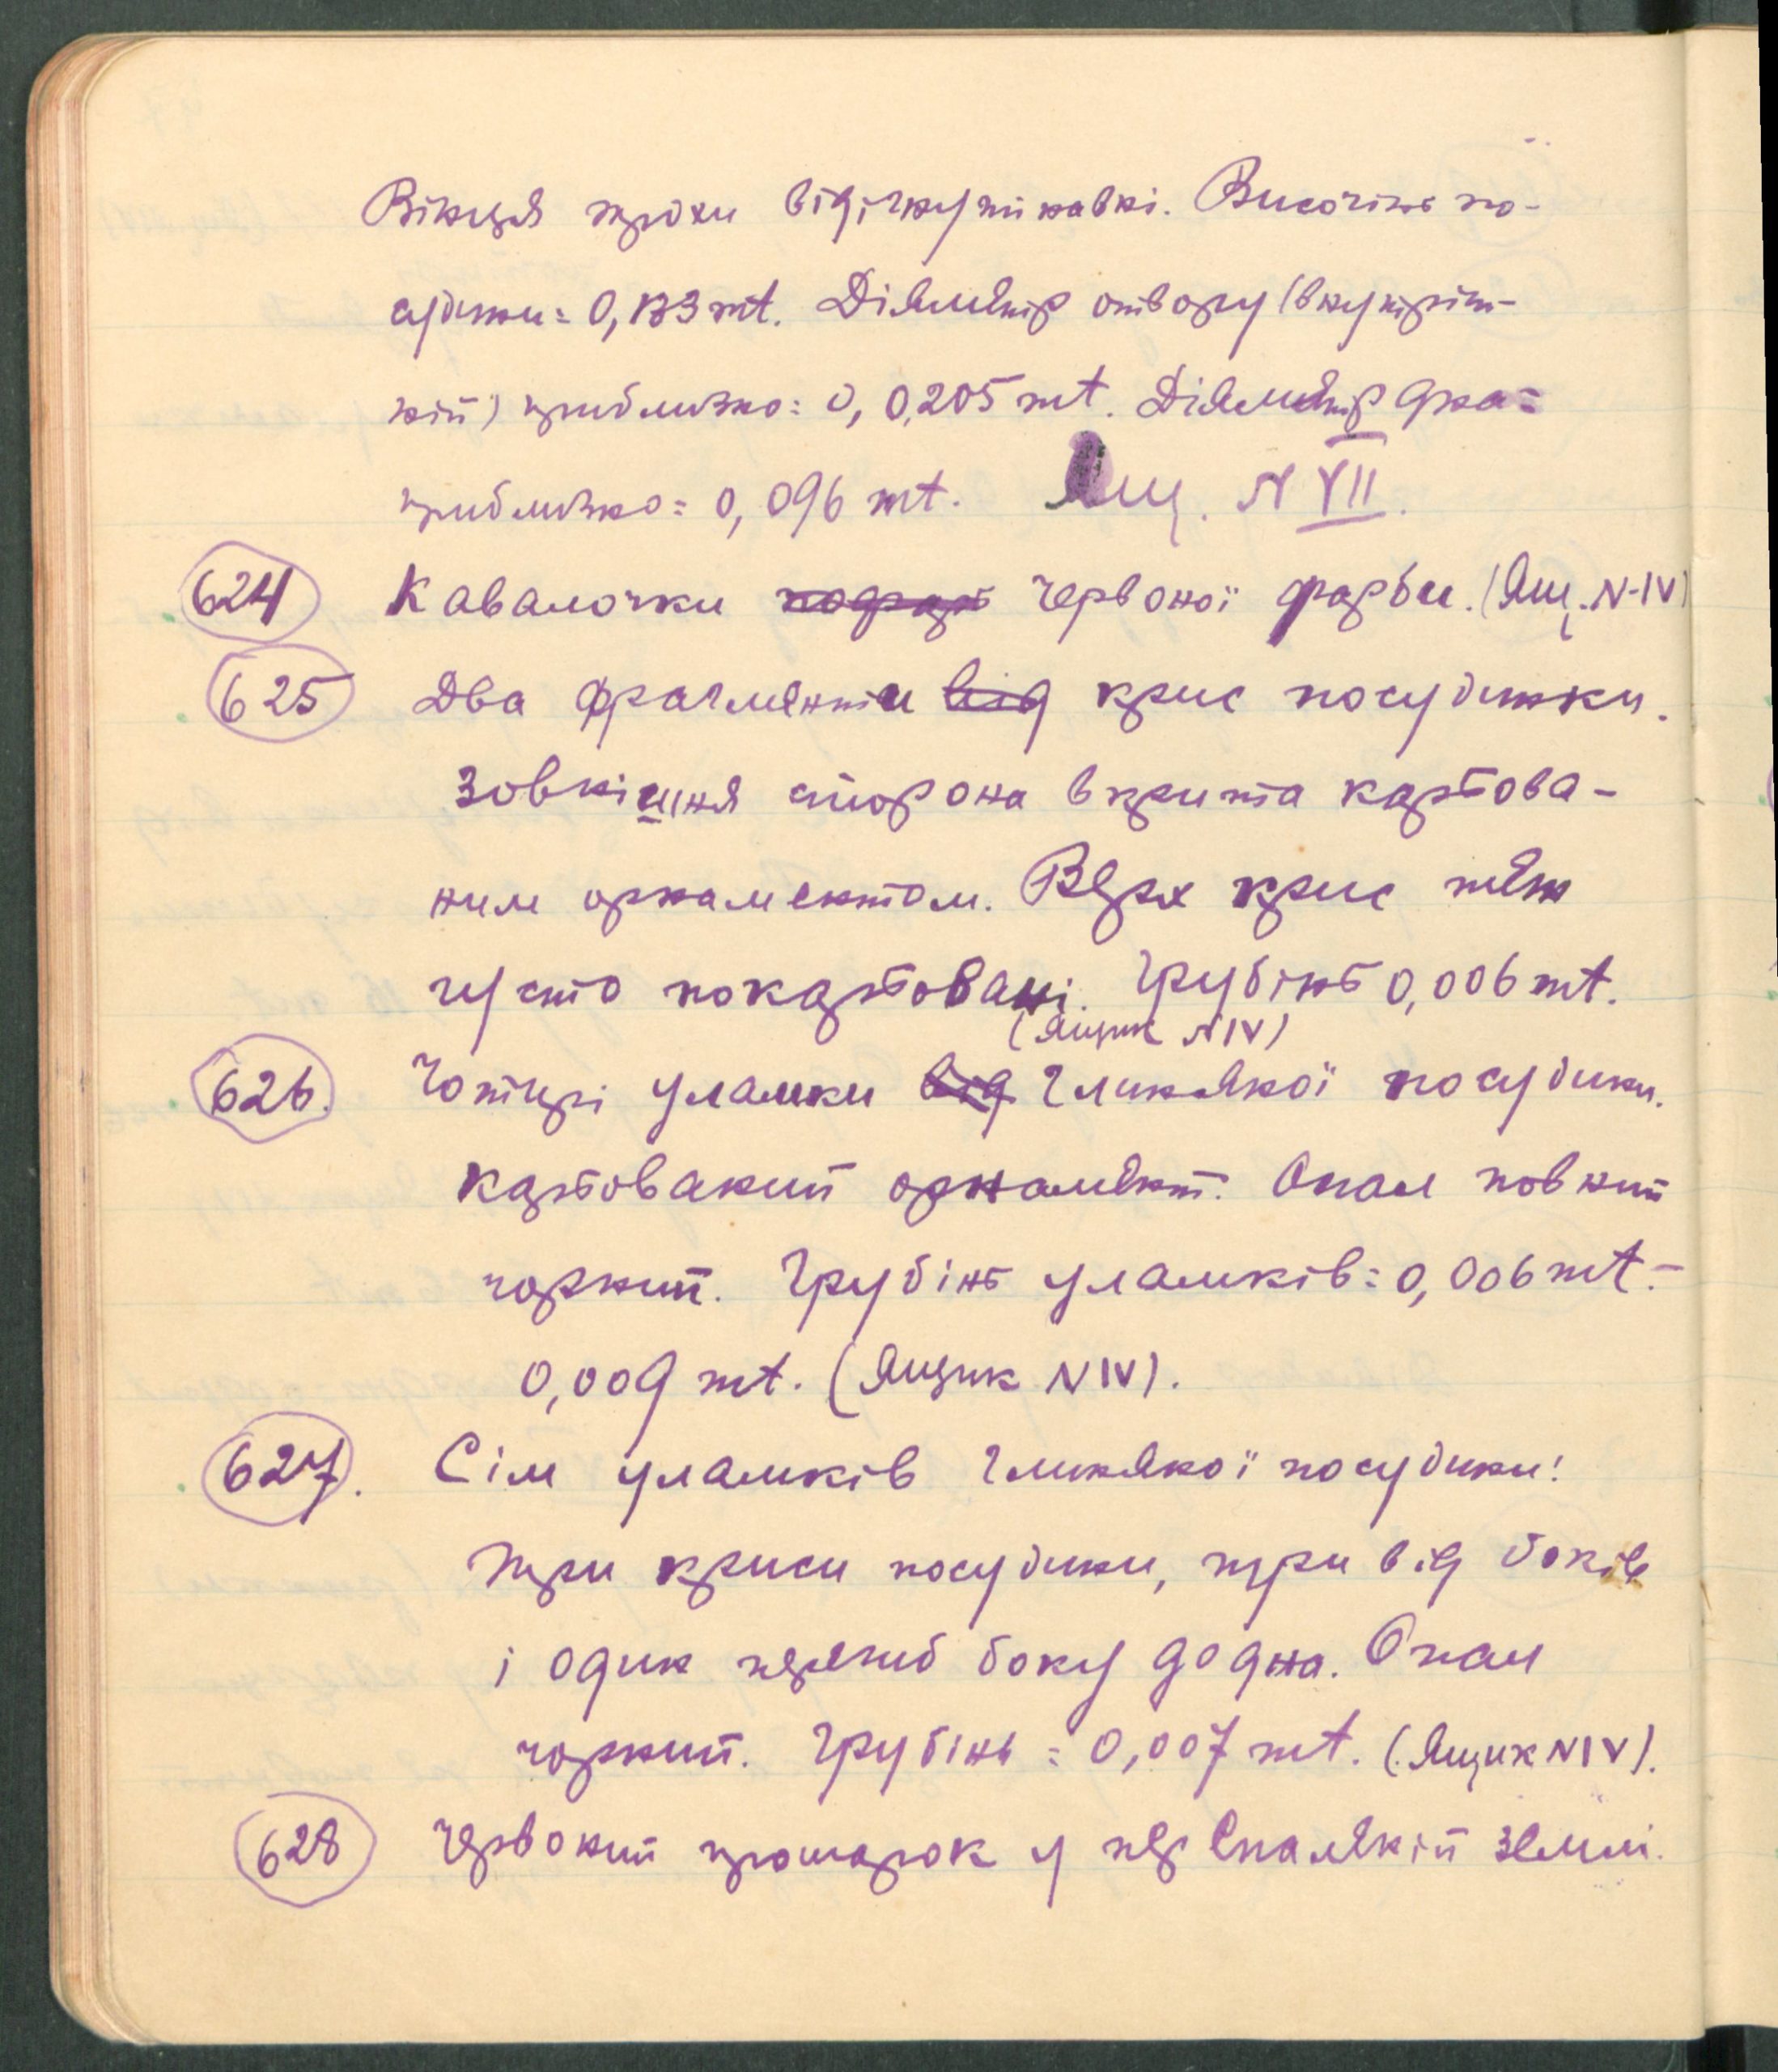 Вінця трохи відігнуті навкі. Височінь по-
судини = 0,133 mt. Діяметр отвору (внутріш-
ній) приблизно = 0, 0,205 mt. Діяметр дна =
приблизно = 0,096 mt. Ящ. N VII.
624 Кавалочки червоної фарби. (Ящ. N-IV)
625 Два фрагменти від крис посудинки.
Зовнішня сторона вкрита карбова-
ним орнаментом. Верх крис теж
густо покарбовані. Грубінь 0,006 mt.
(Ящик N IV)
626. Чотирі уламки від глиняної посудини.
Карбований орнамент. Опал повний
чорний. Грубінь уламків = 0,006 mt. -
0,009 mt. (Ящик N IV).
627. Сім уламків глиняної посудини:
три криси посудини, три від боків
і один перегиб боку до дна. Опал
чорний. Грубінь = 0,007 mt. (Ящик N IV).
628 Червоний прошарок у перепаленій землі.